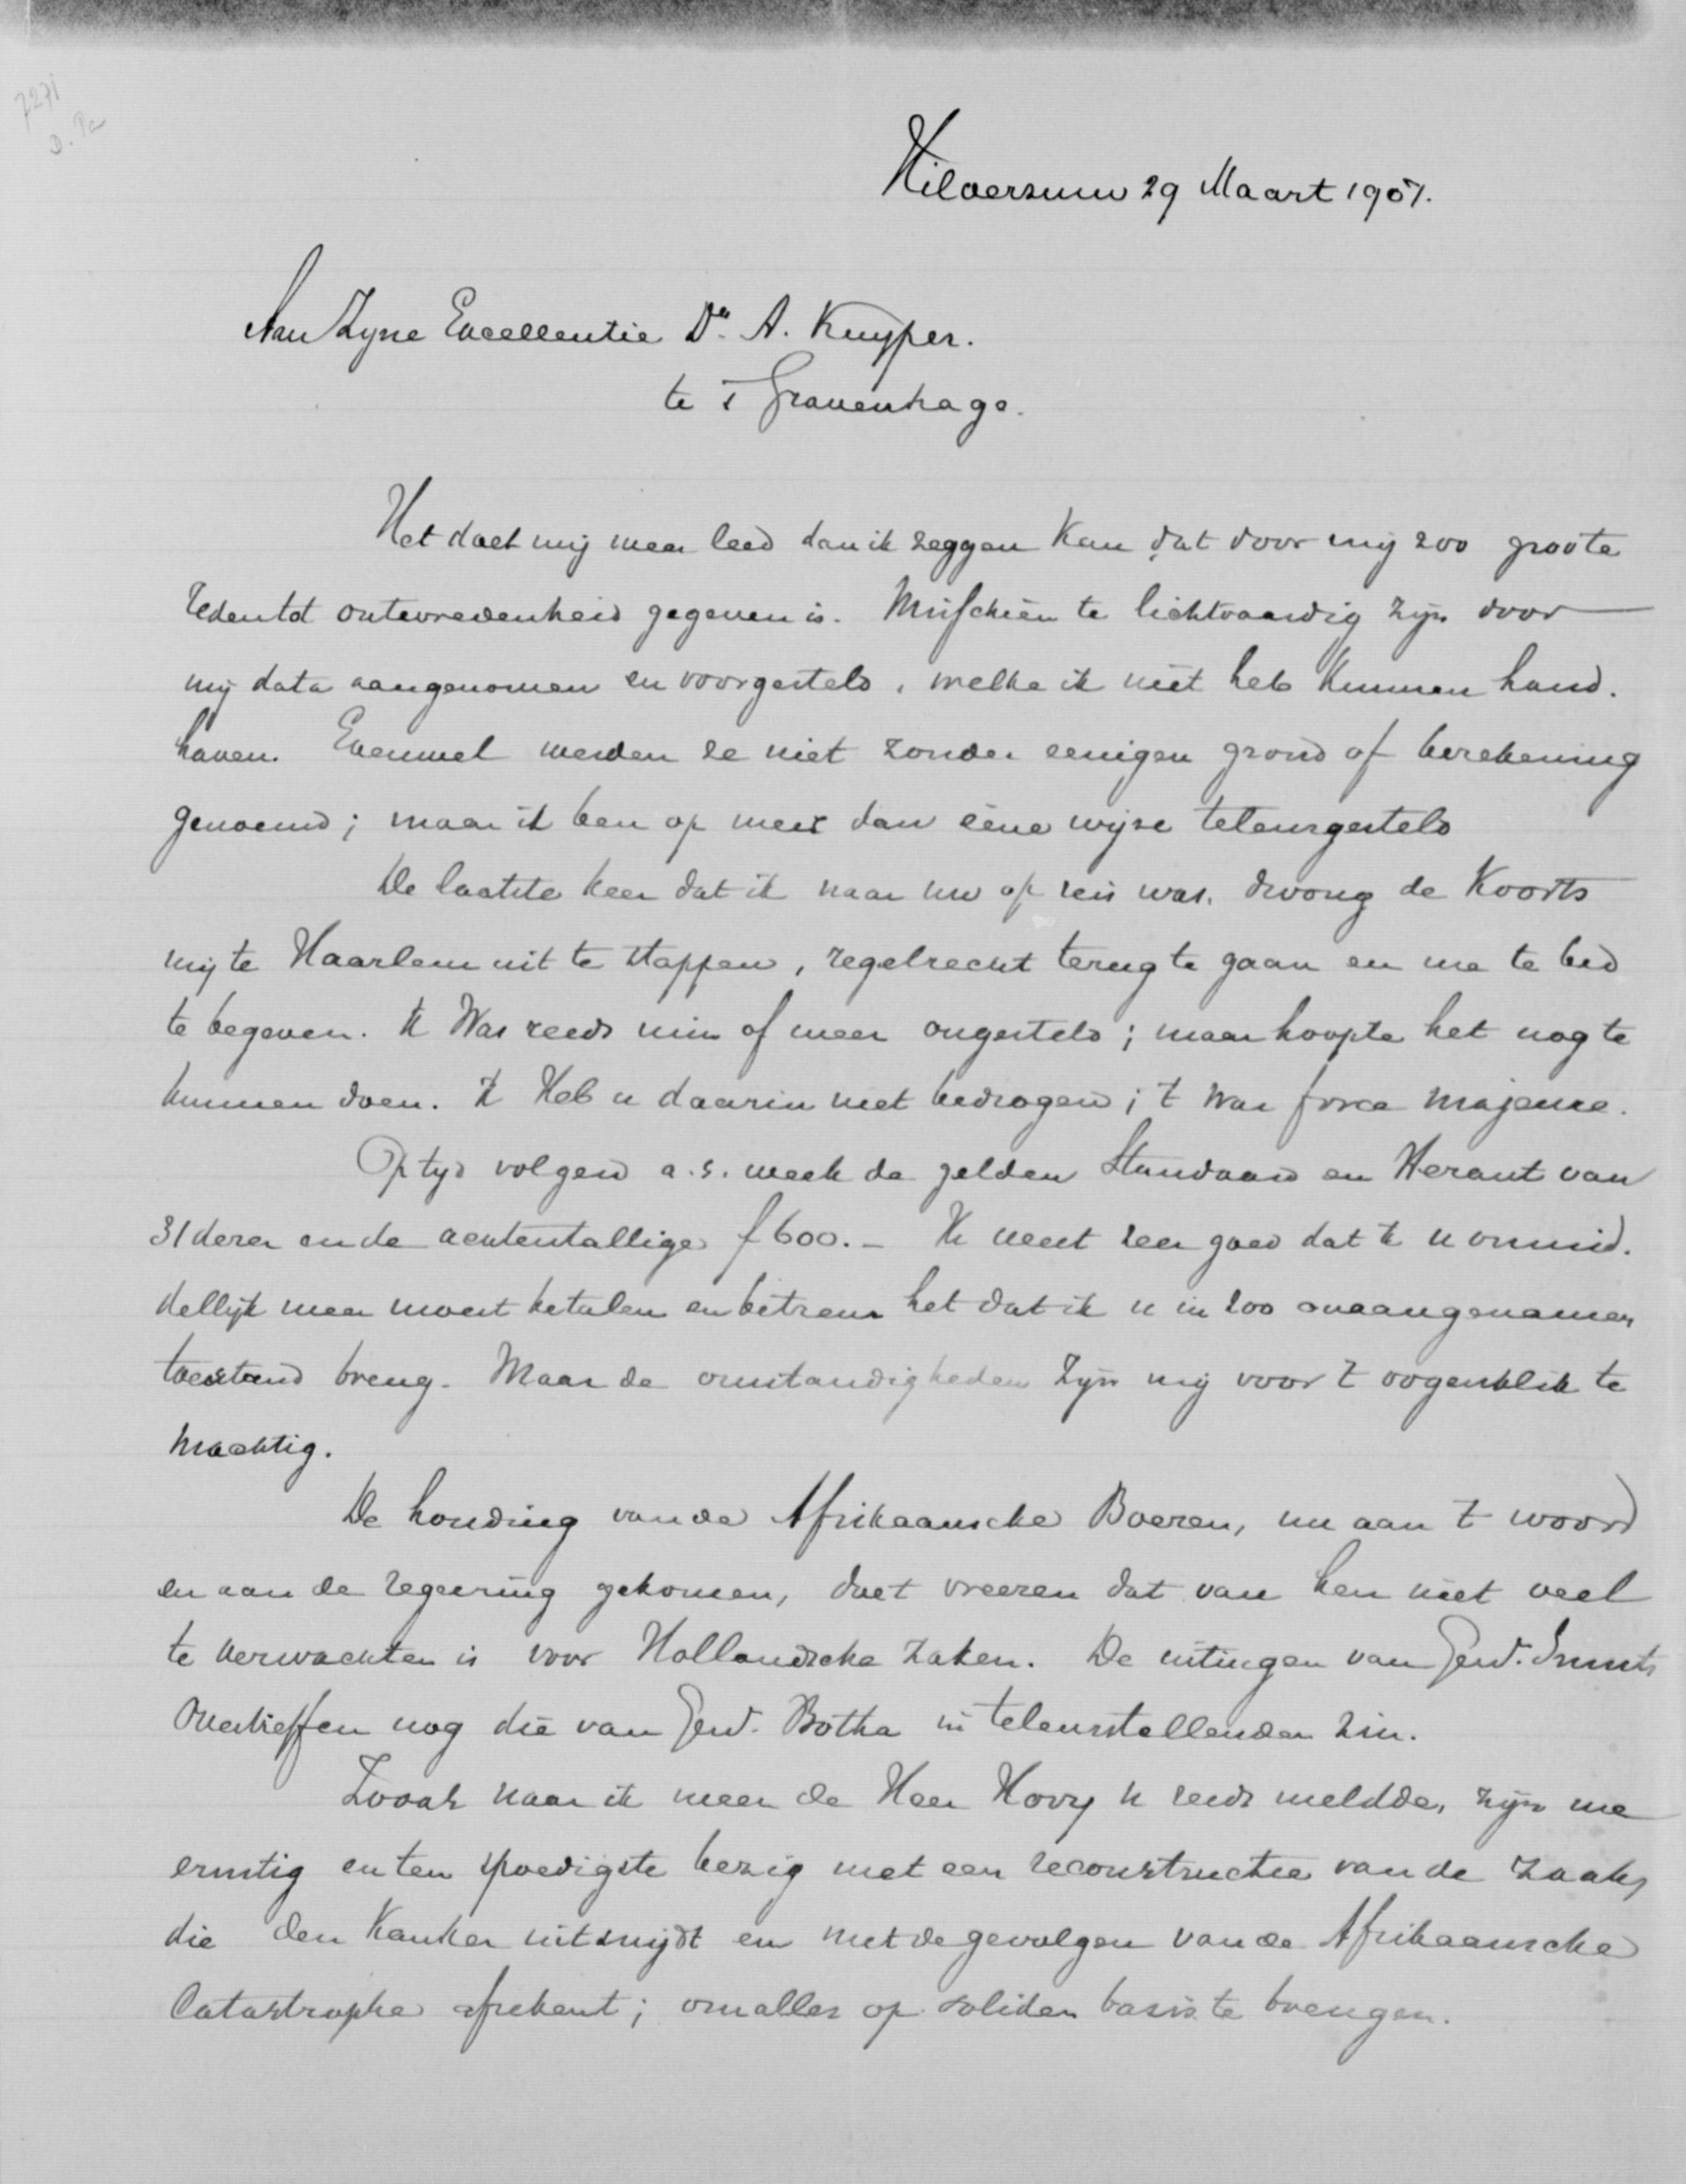 7271
D. Pa
Hilversum 29 Maart 1907.
Aan Zyne Excellentie Dr. A. Kuyper.
te 's Gravenhage.
Het doet mij meer leed dan ik zeggen kan dat door mij zoo groote
reden tot ontevredenheid gegeven is. Misschien te lichtvaardig zijn door
mij data aangenomen en voorgesteld, welke ik niet heb kunnen hand.
haven. Evenwel werden ze niet zonder eenigen grond of berekening
genoemd; maar ik ben op meer dan eene wijze teleurgesteld
De laatste keer dat ik naar uw op reis was, dwong de Koorts
mij te Haarlem uit te stappen, regelrecht terug te gaan en me te bed
te begeven. Ik Was reeds min of meer ongesteld; maar hoopte het nog te
kunnen doen. Ik Heb u daarin niet bedrogen; 't was force majeure.
Op tijd volgen a.s. week de gelden Standaard en Heraut van
31 dezer en de achtentallige f 600.- Ik weet zeer goed dat ik u onmid.
dellijk meer moest betalen en betreur het dat ik u in zoo onaangenamen
toestand breng. Maar de omstandigheden zijn mij voor 't oogenblik te
machtig.
De houding van de Afrikaansche Boeren, nu aan 't woord
en aan de regeering gekomen, doet vreezen dat van hen niet veel
te verwachten is voor Hollandsche zaken. De uitingen van Genl. Smuts
overtreffen nog die van Genl. Botha in teleurstellenden zin.
Zooals naar ik meen de Heer Hovy u reeds meldde, zijn we
ernstig en ten spoedigste bezig met een reconstructie van de zaak,
die den Kanker uitsnijdt en met de gevolgen van de Afrikaansche
Catastrophe afrekent; om alles op soliden basis te brengen.